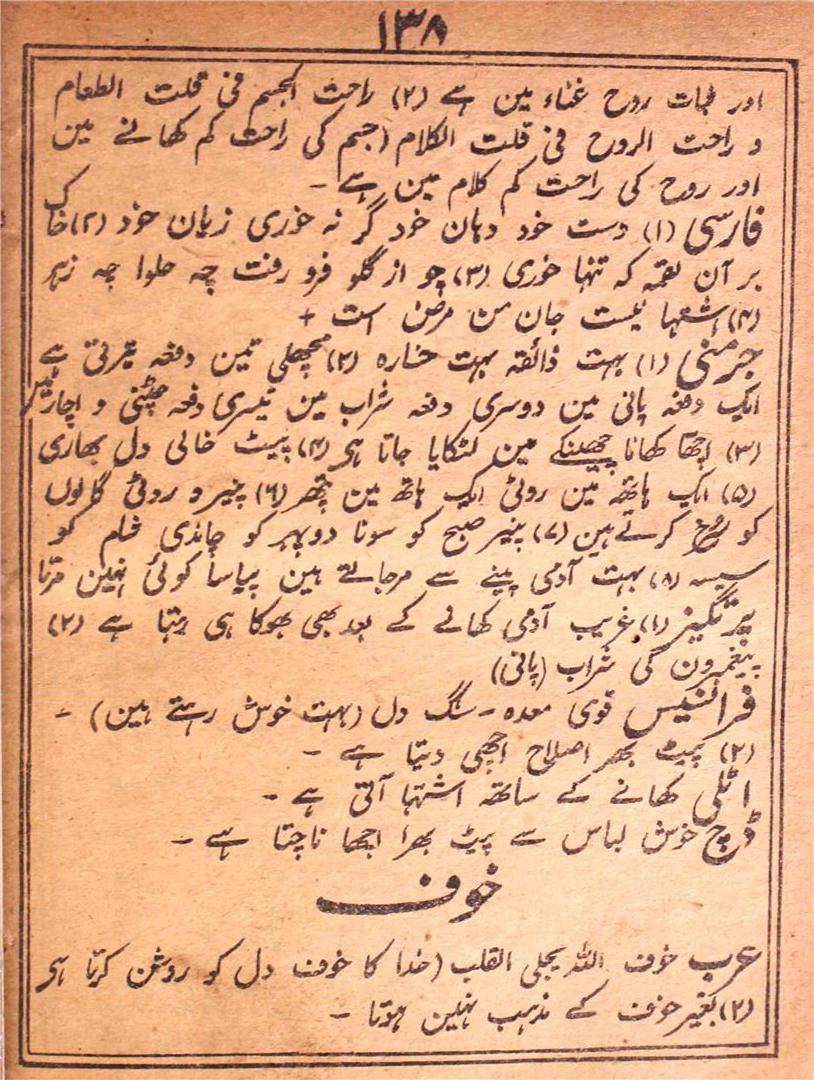 ۱۳۸
اور نجات روح غناء مین ہے (۲) راحت الجسم فی قلت الطعام
و راحت الروح فی قلت الکلام (جسم کی راحت کم کھانے مین
اور روح کی راحت کم کلام مین ہے -
فارسی (۱) دست خود دہان خود گر نہ خوری زیان خود (۲) خاک
بر آن لقمہ کہ تنہا خوری (۳) چو از گلو فرو رفت چہ حلوا چہ زہر
(۴) اشتہا نیست جان من مرض است +
جرمنی (۱) بہت ذائقہ بہت خسارہ (۲) مچھلی تین دفعہ تیرتی ہے
ایک دفعہ پانی مین دوسری دفعہ شراب مین تیسری دفعہ چٹنی و اچار مین
(۳) اچھا کھانا چھینکے مین لٹکایا جاتا ہی (۴) پیٹ خالی دل بھاری
(۵) ایک ہاتھ مین روٹی ایک ہاتھ مین پتھر (۶) پنیر و روٹی گالوں
کو سرخ کرتے ہین (۷) پنیر صبح کو سونا دوپہر کو چاندی شام کو
سیسہ (۸) بہت آدمی پینے سے مرجاتے ہین پیاسا کوئی نہین مرتا
پرتگیز (۱) غریب آدمی کھانے کے بعد بھی بھوکا ہی رہتا ہے (۲)
پیغمبرون کی شراب (پانی)
فرانسیس قوی معدہ - سنگ دل (بہت خوش رہتے ہین) -
(۲) پیٹ بھر اصلاح اچھی دیتا ہے -
اٹلی کھانے کے ساتھ اشتہا آتی ہے -
ڈچ خوش لباس سے پیٹ بھرا اچھا ناچتا ہے -
خوف
عرب خوف اللہ یجلی القلب (خدا کا خوف دل کو روشن کرتا ہی
(۲) بغیر خوف کے مذہب نہین ہوتا -